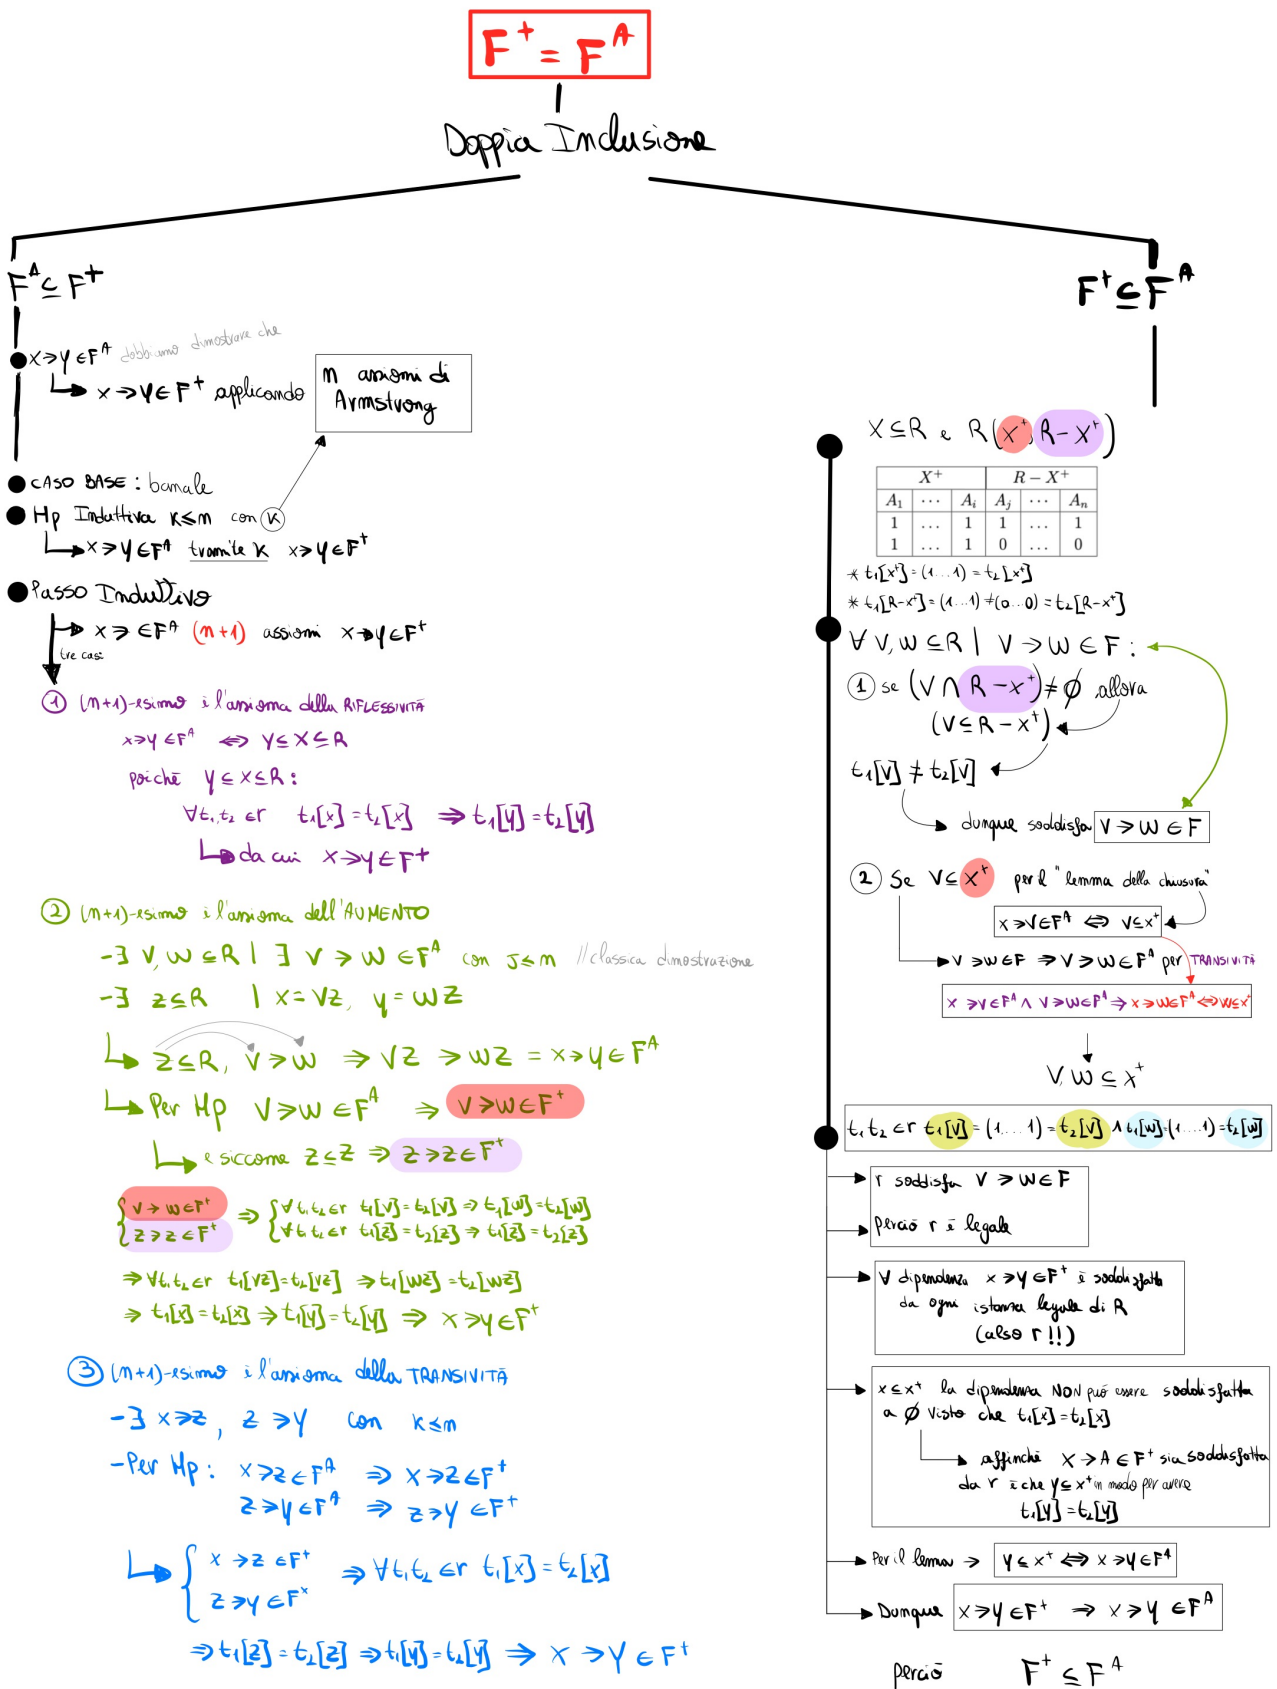 F⁺ = Fᴬ
Doppia Inclusione
Fᴬ ⊆ F⁺
X→Y ∈ Fᴬ dobbiamo dimostrare che
X→Y ∈ F⁺ applicando
n assiomi di
Armstrong
CASO BASE : banale
Hp Induttiva K≤n con K
X→Y ∈ Fᴬ tramite K X→Y ∈ F⁺
Passo Induttivo
X→ ∈ Fᴬ (n+1) assiomi X→Y ∈ F⁺
tre casi
1 (n+1)-esimo è l'assioma della RIFLESSIVITÀ
X→Y ∈ Fᴬ ⇔ Y⊆X⊆R
poiché Y⊆X⊆R :
∀t₁,t₂ ∈ r t₁[X] = t₂[X] ⇒ t₁[Y] = t₂[Y]
da cui X→Y ∈ F⁺
2 (n+1)-esimo è l'assioma dell'AUMENTO
-∃ V, W ⊆R | ∃ V → W ∈ Fᴬ con J≤n //classica dimostrazione
-∃ Z⊆R | X = VZ, Y = WZ
Z⊆R, V→W ⇒ VZ → WZ = X→Y ∈ Fᴬ
Per Hp V→W ∈ Fᴬ ⇒ V→W ∈ F⁺
e siccome Z⊆Z ⇒ Z→Z ∈ F⁺
{ V→W ∈ F⁺ ⇒ { ∀t₁t₂ ∈ r t₁[V]=t₂[V] ⇒ t₁[W]=t₂[W]
Z→Z ∈ F⁺ ∀t₁t₂ ∈ r t₁[Z]=t₂[Z] ⇒ t₁[Z]=t₂[Z]
⇒ ∀t₁t₂ ∈ r t₁[VZ]=t₂[VZ] ⇒ t₁[WZ]=t₂[WZ]
⇒ t₁[X]=t₂[X] ⇒ t₁[Y]=t₂[Y] ⇒ X→Y ∈ F⁺
3 (n+1)-esimo è l'assioma della TRANSIVITÀ
-∃ X→Z, Z→Y con K≤n
-Per Hp : X→Z ∈ Fᴬ ⇒ X→Z ∈ F⁺
Z→Y ∈ Fᴬ ⇒ Z→Y ∈ F⁺
{ X→Z ∈ F⁺ ⇒ ∀t₁t₂ ∈ r t₁[X] = t₂[X]
Z→Y ∈ F⁺
⇒ t₁[Z] = t₂[Z] ⇒ t₁[Y] = t₂[Y] ⇒ X→Y ∈ F⁺
F⁺ ⊆ Fᴬ
X⊆R e R(X⁺, R-X⁺)
X⁺ R − X⁺
A₁ ⋯ Aᵢ Aⱼ ⋯ Aₙ
1 … 1 1 … 1
1 … 1 0 … 0
* t₁[X⁺] = (1...1) = t₂[X⁺]
* t₁[R-X⁺] = (1...1) ≠ (0...0) = t₂[R-X⁺]
∀ V,W ⊆R | V → W ∈ F :
1 se (V ∩ R-X⁺) ≠ ∅ allora
(V⊆R-X⁺)
t₁[V] ≠ t₂[V]
dunque soddisfa V→W ∈ F
2 Se V⊆X⁺ per il "lemma della chiusura"
X→V ∈ Fᴬ ⇔ V⊆X⁺
V→W ∈ F ⇒ V→W ∈ Fᴬ per TRANSIVITÀ
X→V ∈ Fᴬ ∧ V→W ∈ Fᴬ ⇒ X→W ∈ Fᴬ ⇔ W⊆X⁺
V, W ⊆ X⁺
t₁ t₂ ∈ r t₁[V] = (1....1) = t₂[V] ∧ t₁[W] = (1....1) = t₂[W]
r soddisfa V→W ∈ F
perciò r è legale
∀ dipendenza X→Y ∈ F⁺ è soddisfatta
da ogni istanza legale di R
(also r !!)
X⊆X⁺ la dipendenza NON può essere soddisfatta
a ∅ visto che t₁[X] = t₂[X]
affinché X→A ∈ F⁺ sia soddisfatta
da r è che Y⊆X⁺ in modo per avere
t₁[Y] = t₂[Y]
Per il lemma → Y⊆X⁺ ⇔ X→Y ∈ Fᴬ
Dunque X→Y ∈ F⁺ ⇒ X→Y ∈ Fᴬ
perciò F⁺ ⊆ Fᴬ